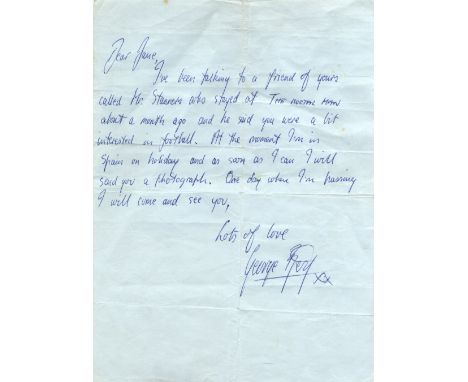 Dear Jane,
I've been talking to a friend of yours
called Mr. who stayed at
about a month ago and he said you were a bit
interested in football. At the moment I'm in
Spain on holiday and as soon as I can I will
send you a photograph. One day when I'm passing
I will come and see you,
Lots of love
George Best
xx